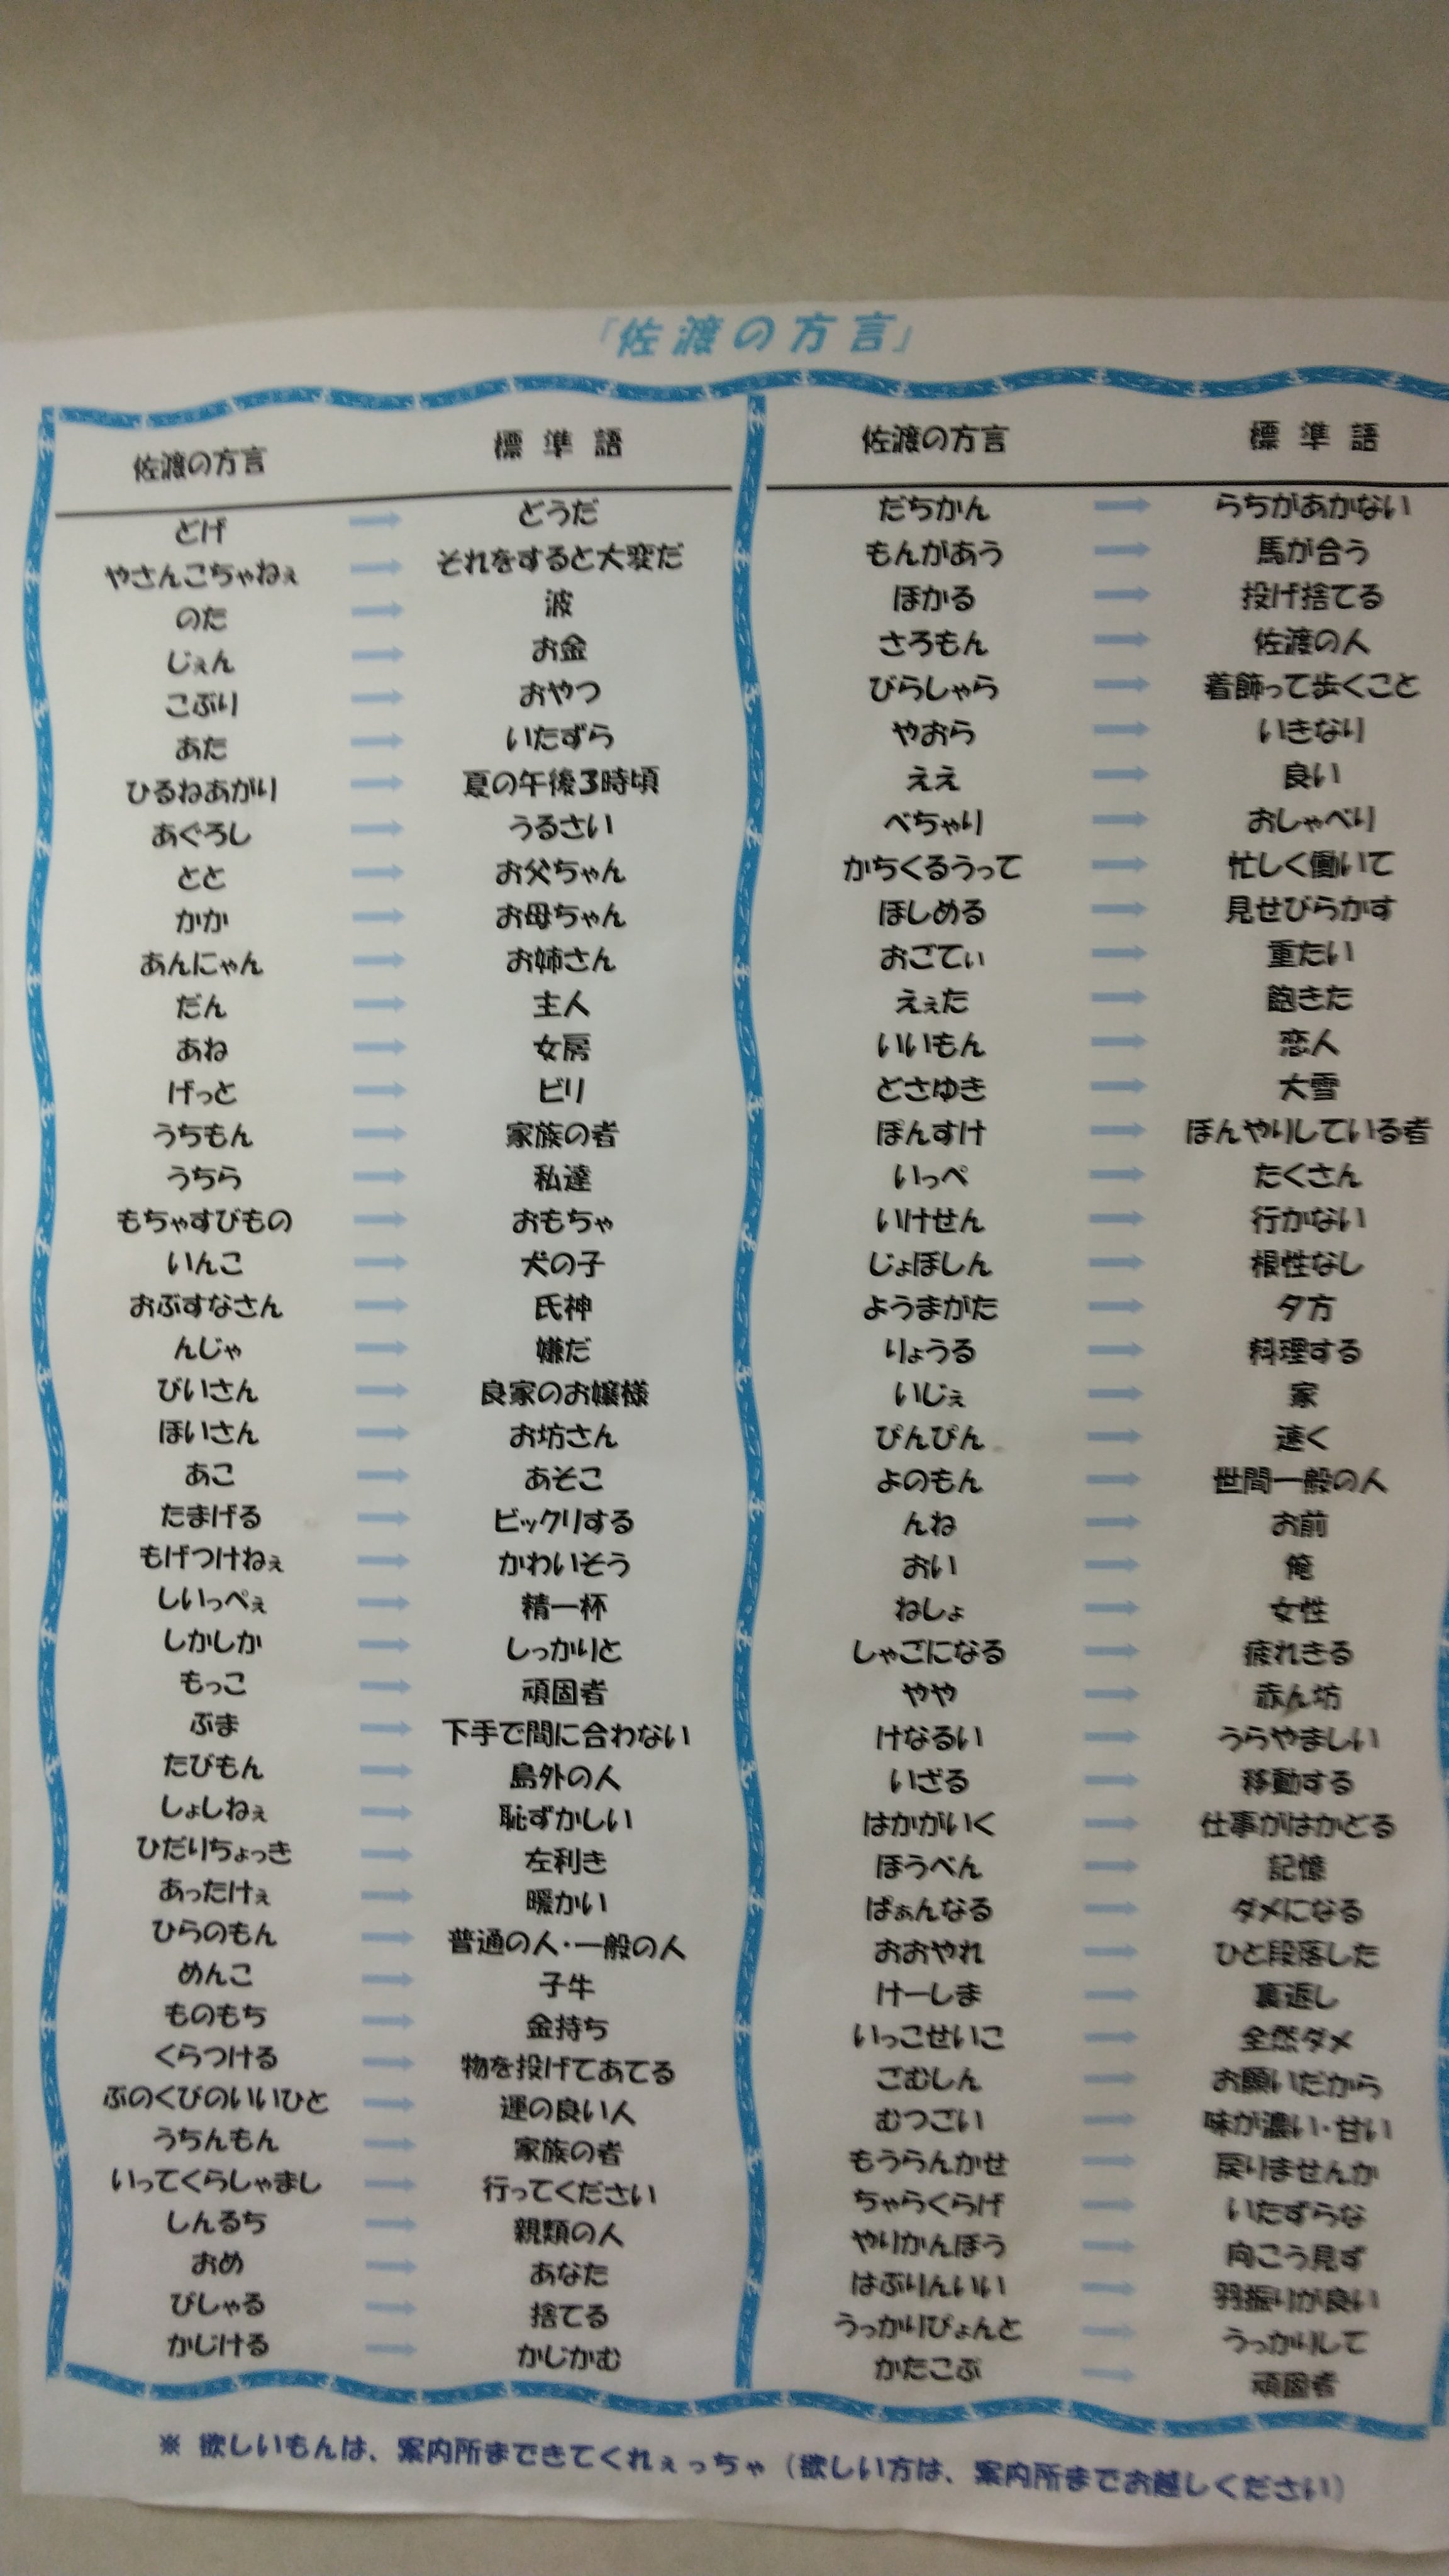 「佐渡の方言」
佐渡の方言 標準語
どげ → どうだ
やさんこちゃねぇ → それをすると大変だ
のた → 波
じぇん → お金
こぶり → おやつ
あた → いたずら
ひるねあがり → 夏の午後3時頃
あぐろし → うるさい
とと → お父ちゃん
かか → お母ちゃん
あんにゃん → お姉さん
だん → 主人
あね → 女房
げっと → ビリ
うちもん → 家族の者
うちら → 私達
もちゃすびもの → おもちゃ
いんこ → 犬の子
おぶすなさん → 氏神
んじゃ → 嫌だ
びいさん → 良家のお嬢様
ほいさん → お坊さん
あこ → あそこ
たまげる → ビックリする
もげつけねぇ → かわいそう
しいっぺぇ → 精一杯
しかしか → しっかりと
もっこ → 頑固者
ぶま → 下手で間に合わない
たびもん → 島外の人
しょしねぇ → 恥ずかしい
ひだりちょっき → 左利き
あったけぇ → 暖かい
ひらのもん → 普通の人・一般の人
めんこ → 子牛
ものもち → 金持ち
くらつける → 物を投げてあてる
ぶのくびのいいひと → 運の良い人
うちんもん → 家族の者
いってくらしゃまし → 行ってください
しんるち → 親類の人
おめ → あなた
びしゃる → 捨てる
かじける → かじかむ
佐渡の方言 標準語
だちかん → らちがあかない
もんがあう → 馬が合う
ほかる → 投げ捨てる
さろもん → 佐渡の人
びらしゃら → 着飾って歩くこと
やおら → いきなり
ええ → 良い
べちゃり → おしゃべり
かちくるうって → 忙しく働いて
ほしめる → 見せびらかす
おごてぃ → 重たい
えぇた → 飽きた
いいもん → 恋人
どさゆき → 大雪
ぼんすけ → ぼんやりしている者
いっぺ → たくさん
いけせん → 行かない
じょぼしん → 根性なし
ようまがた → 夕方
りょうる → 料理する
いじぇ → 家
ぴんぴん → 速く
よのもん → 世間一般の人
んね → お前
おい → 俺
ねしょ → 女性
しゃごになる → 疲れきる
やや → 赤ん坊
けなるい → うらやましい
いざる → 移動する
はかがいく → 仕事がはかどる
ほうべん → 記憶
ぱぁんなる → ダメになる
おおやれ → ひと段落した
けーしま → 裏返し
いっこせいこ → 全然ダメ
ごむしん → お願いだから
むつごい → 味が濃い・甘い
もうらんかせ → 戻りませんか
ちゃらくらげ → いたずらな
やりかんぼう → 向こう見ず
はぶりんいい → 羽振りが良い
うっかりぴょんと → うっかりして
かたこぶ → 頑固者
※ 欲しいもんは、案内所まできてくれぇっちゃ（欲しい方は、案内所までお越しください）